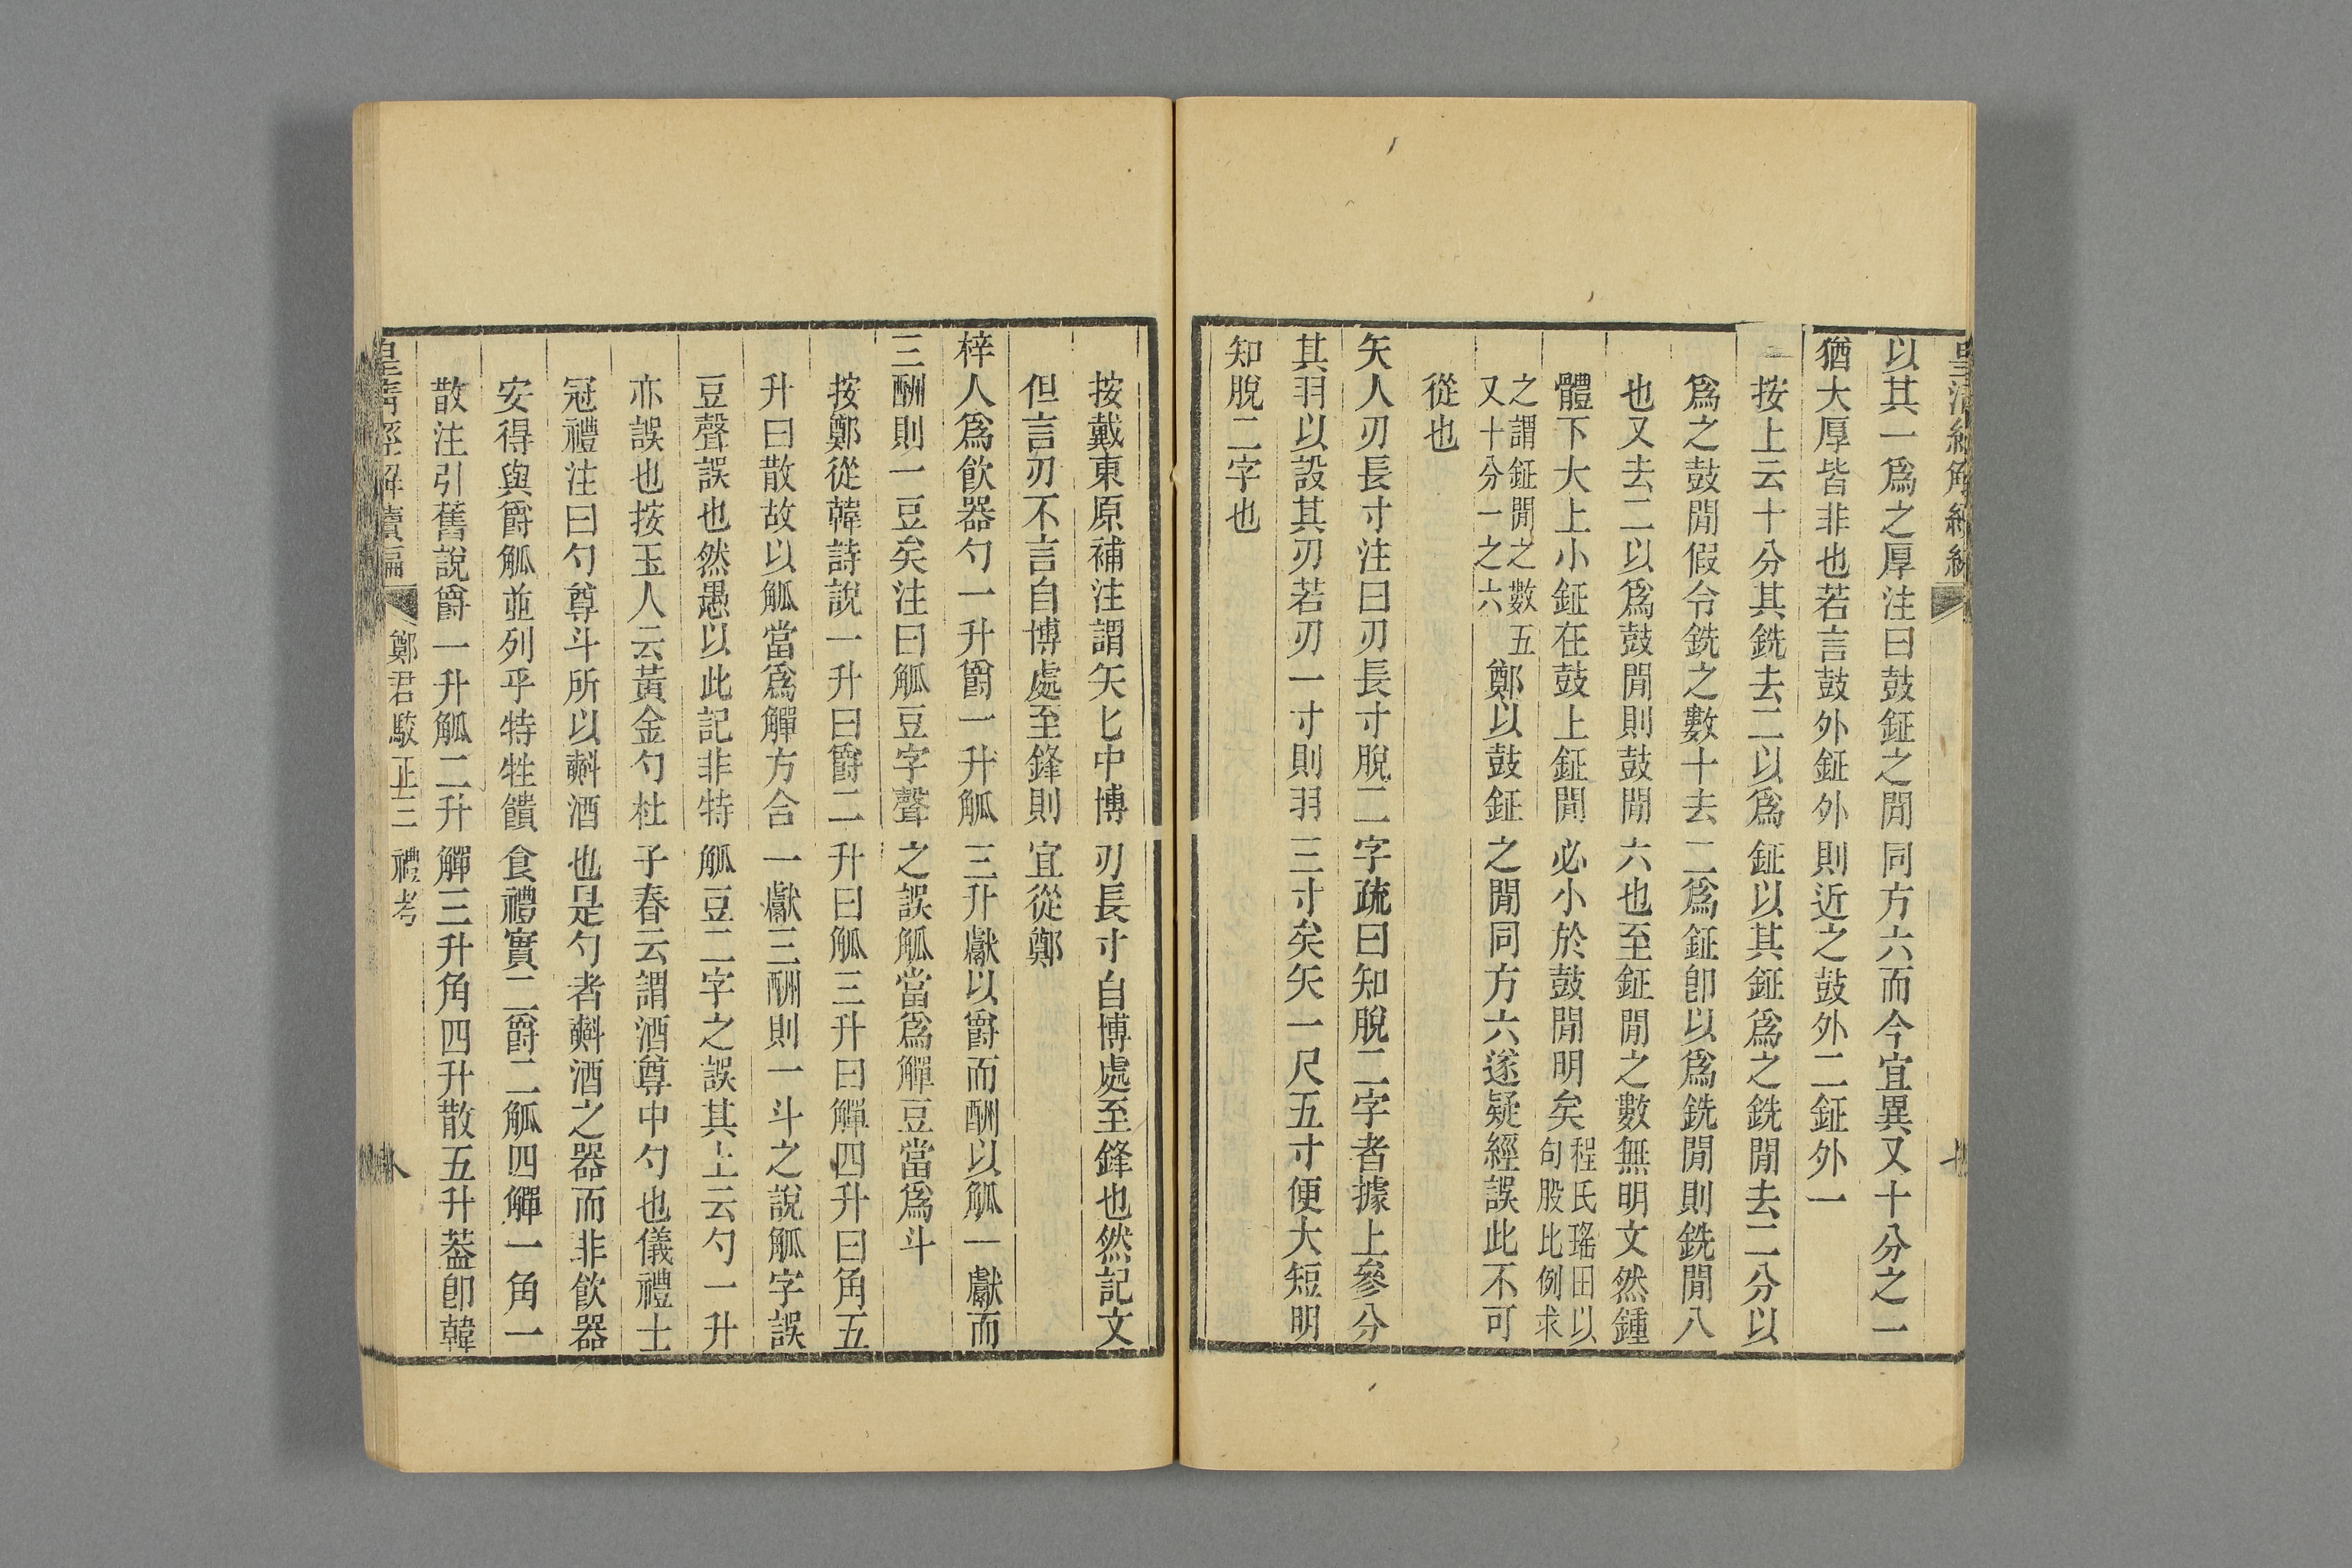 以其一爲之厚注曰鼓鉦之閒同方六而今宜異又十分之一
猶大厚皆非也若言鼓外鉦外則近之鼓外二鉦外一
按上云十分其銑去二以爲鉦以其鉦爲之銑閒去二分以
爲之鼓閒假令銑之數十去二爲鉦卽以爲銑閒則銑閒八
也又去二以爲鼓閒則鼓閒六也至鉦閒之數無明文然鍾
體下大上小鉦在鼓上鉦閒必小於鼓閒明矣程氏瑤田以句股比例求
之謂鉦閒之數五又十分一之六鄭以鼓鉦之閒同方六遂疑經誤此不可
從也
矢人刃長寸注曰刃長寸脫二字疏曰知脫二字者據上參分
其羽以設其刃若刃一寸則羽三寸矣矢一尺五寸便大短明
知脫二字也
按戴東原補注謂矢匕中博刃長寸自博處至鋒也然記文
但言刃不言自博處至鋒則宜從鄭
梓人爲飮器勺一升爵一升觚三升獻以爵而酬以觚一獻而
三酬則一豆矣注曰觚豆字聲之誤觚當爲觶豆當爲斗
按鄭從韓詩說一升曰爵二升曰觚三升曰觶四升曰角五
升曰散故以觚當爲觶方合一獻三酬則一斗之說觚字誤
豆聲誤也然愚以此記非特觚豆二字之誤其上云勺一升
亦誤也按玉人云黃金勺杜子春云謂酒尊中勺也儀禮士
冠禮注曰勺尊斗所以㪺酒也是勺者㪺酒之器而非飮器
安得與爵觚並列乎特牲饋食禮實二爵二觚四觶一角一
散注引舊說爵一升觚二升觶三升角四升散五升葢卽韓
皇淸經解續編 鄭君駁正三禮考 八